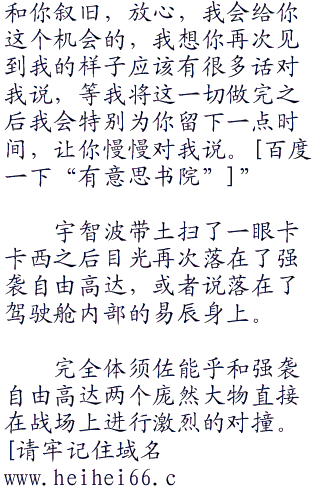 和你叙旧，放心，我会给你
这个机会的，我想你再次见
到我的样子应该有很多话对
我说，等我将这一切做完之
后我会特别为你留下一点时
间，让你慢慢对我说。[百度
一下“有意思书院”]”
宇智波带土扫了一眼卡
卡西之后目光再次落在了强
袭自由高达，或者说落在了
驾驶舱内部的易辰身上。
完全体须佐能乎和强袭
自由高达两个庞然大物直接
在战场上进行激烈的对撞。
[请牢记住域名
www.heihei66.c